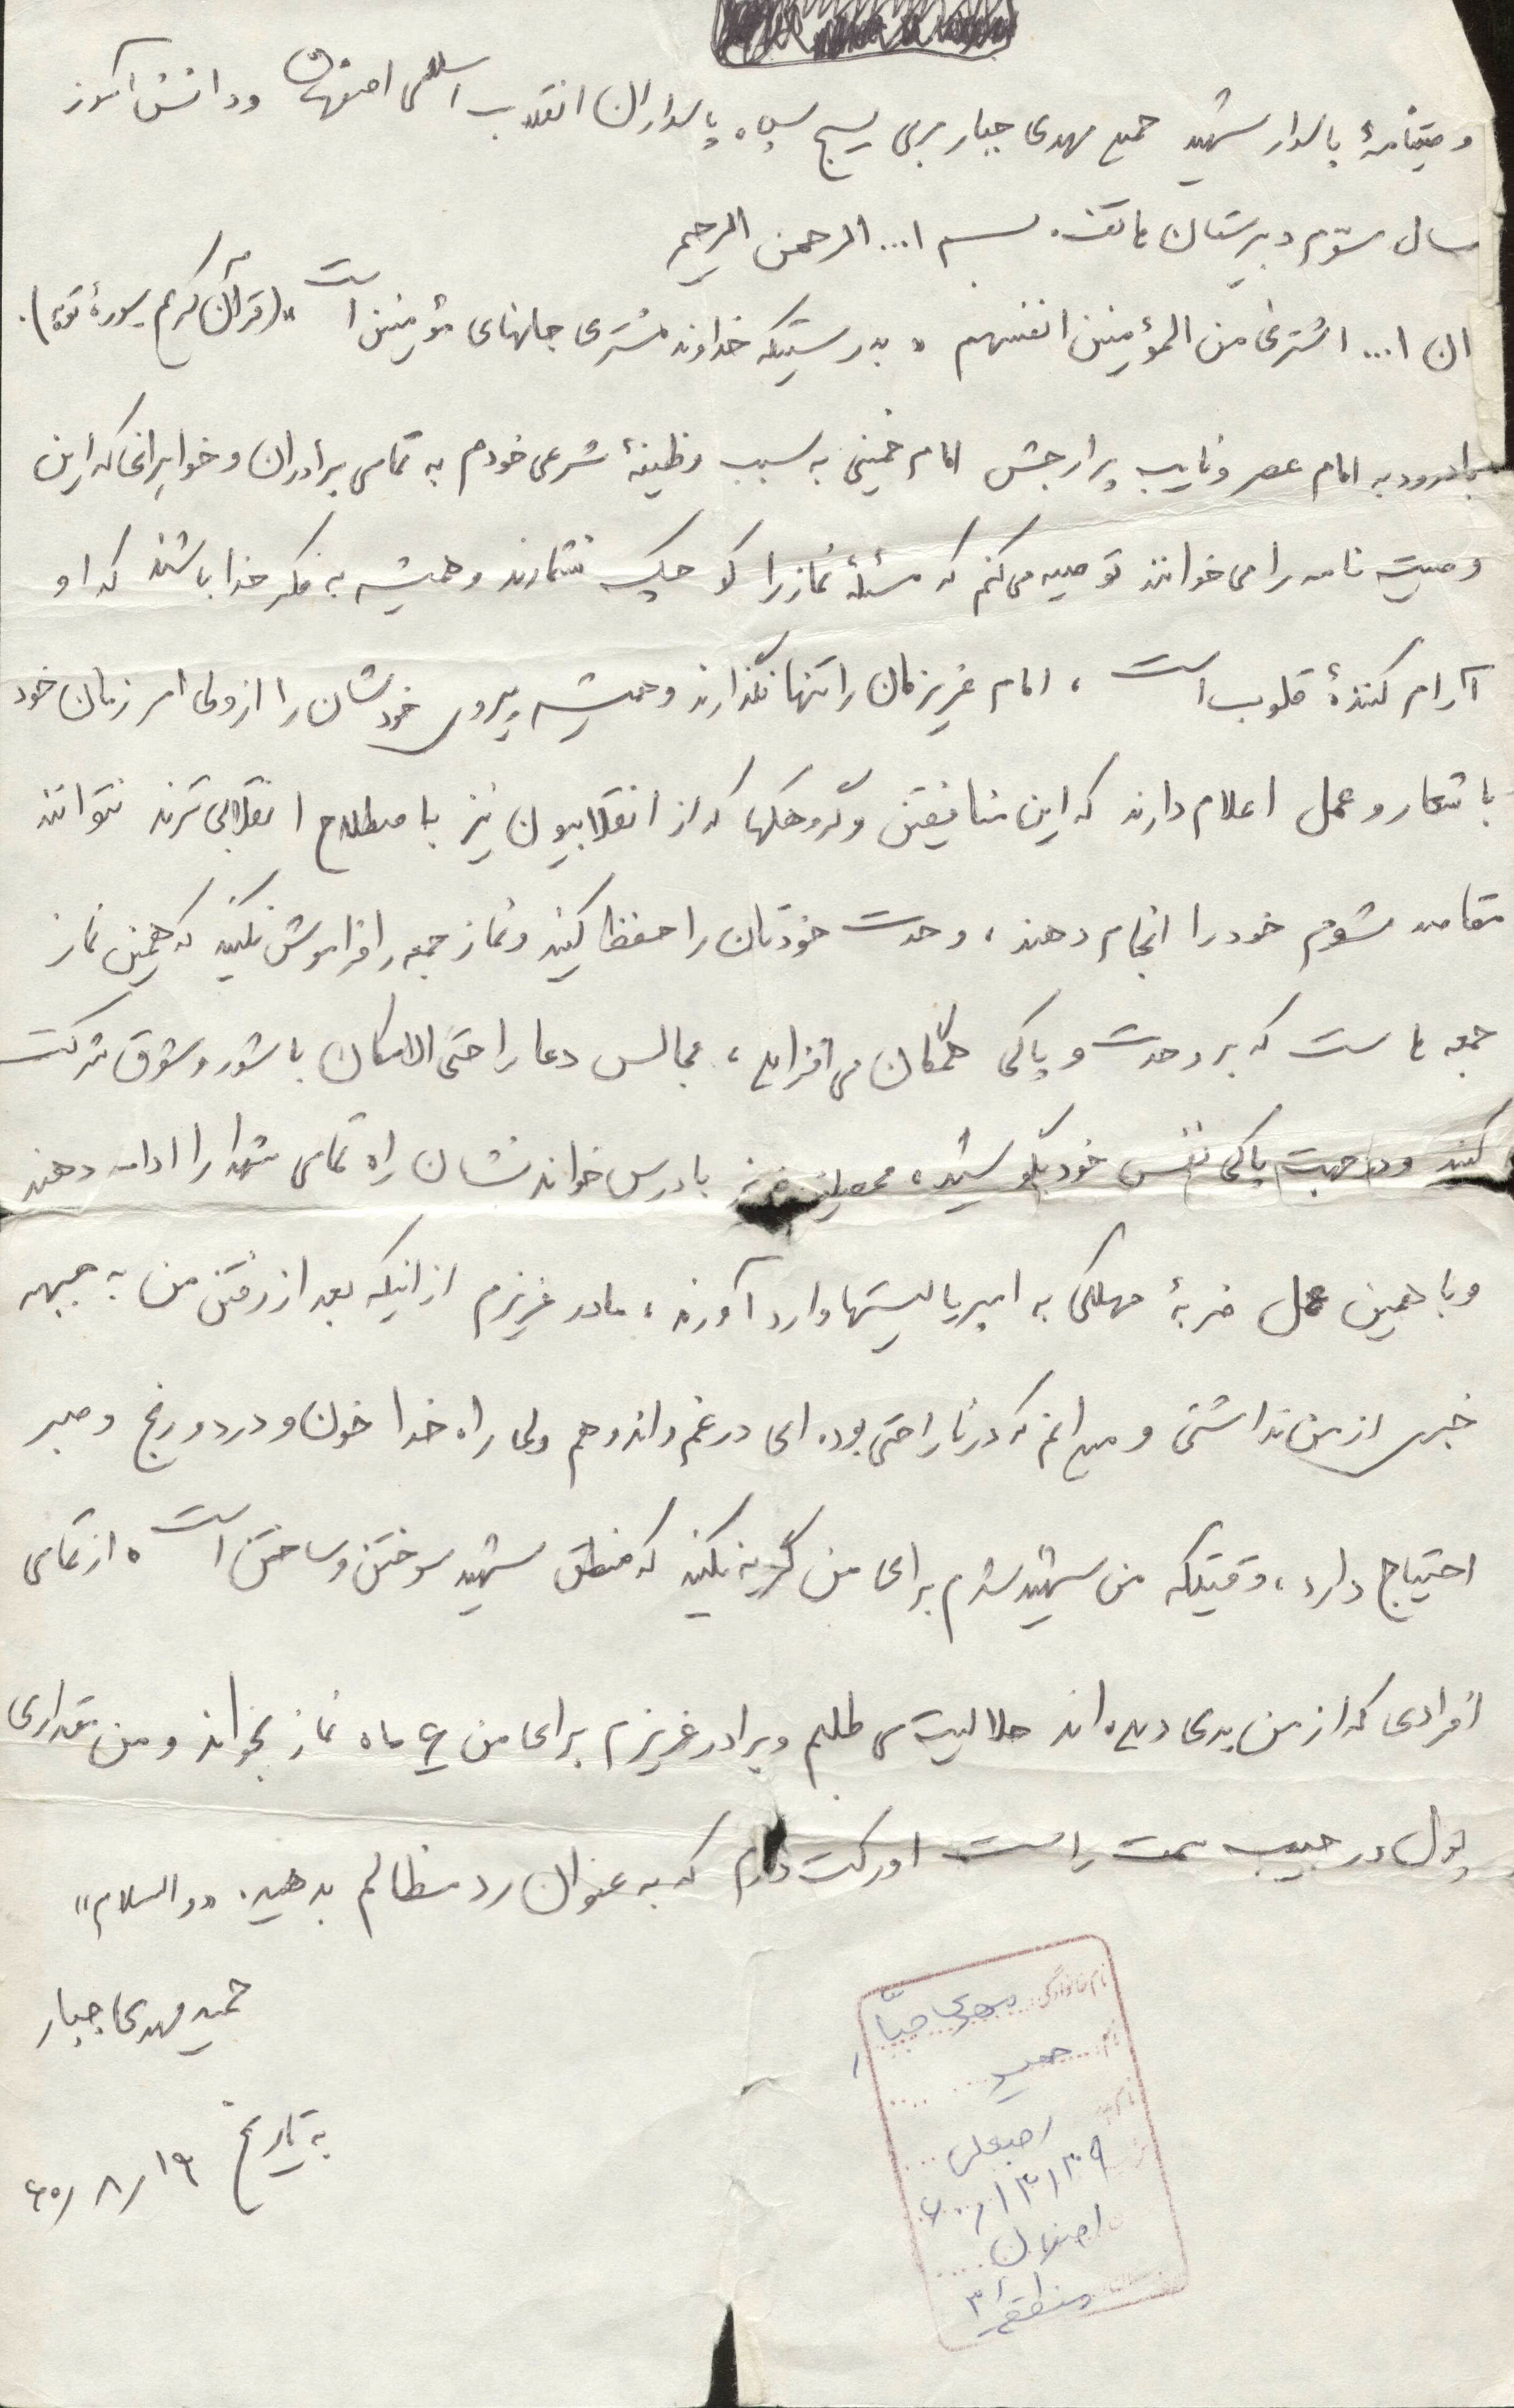 وصیتنامهٔ پاسدار شهید حمید مهدی جبار مربی بسیج سپاه پاسداران انقلاب اسلامی اصفهان ودانش آموز
سال سوّم دبیرستان هاتف. بسم ا... الرحمن الرحیم
ان ا... اشتری من المؤمنین انفسهم «بدرستیکه خداوند مشتری جانهای مؤمنین است»(قرآن کریم سورهٔ توبه).
بادرود به امام عصر ونایب برارجش امام خمینی به سبب وظیفهٔ شرعی خودم به تمامی برادران و خواهرانی که این
وصیت نامه را می خوانند توصیه می کنم که مسئلهٔ نماز را کوچک نشمارند وهمیشه به فکر خدا باشند که او
آرام کنندهٔ قلوب است، امام عزیزمان را تنها نگذارند وهمیشه پیروی خودشان را از ولی امر زمان خود
با شعار و عمل اعلام دارند که این منافیقن وگروهکها که از انقلابیون نیز با صطلاح انقلابی ترند نتوانند
مقاصد شوم خود را انجام دهند، وحدت خودتان را حفظ کنید ونماز جمعه را فراموش نکنید که همین نماز
جمعه هاست که بر وحدت و پاکی همگان می افزاید، مجالس دعا را حتی الامکان با شور و شوق شرکت
کنید ودرجهت پاکی نفس خود بکوشید، محصلین عزیز با درس خواندنشان راه تمامی شهدا را ادامه دهند
وبا همین عمل ضربهٔ مهلکی به امپریالیستها وارد آورند، مادر عزیزم از اینکه بعد از رفتن من به جبهه
خبری از من نداشتی و میدانم که در ناراحتی بوده ای در غم واندوهم ولی راه خدا خون و درد و رنج وصبر
احتیاج دارد، وقتیکه من شهید شدم برای من گریه نکنید که منطق شهید سوختن وساختن است. از تمامی
افرادی که از من بدی دیده اند حلالیت می طلبم وبرادر عزیزم برای من ۶ ماه نماز بخواند و من مقداری
پول در جیب سمت راست اورکت دارم که به عنوان رد مظالم بدهید. «والسلام»
حمید مهدی جبار
به تاریخ ۶۰/۸/۱۹
نام خانوادگی: مهدی جبار
نام: حمید
رجبعلی
۶۰/۱۳۱۳۰۹
اصفهان
منطقه ۳